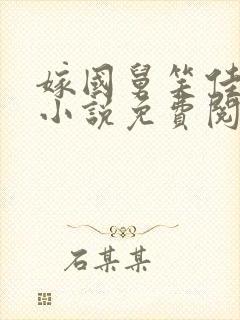 嫁國舅笑佳
小說免費閱
石某某